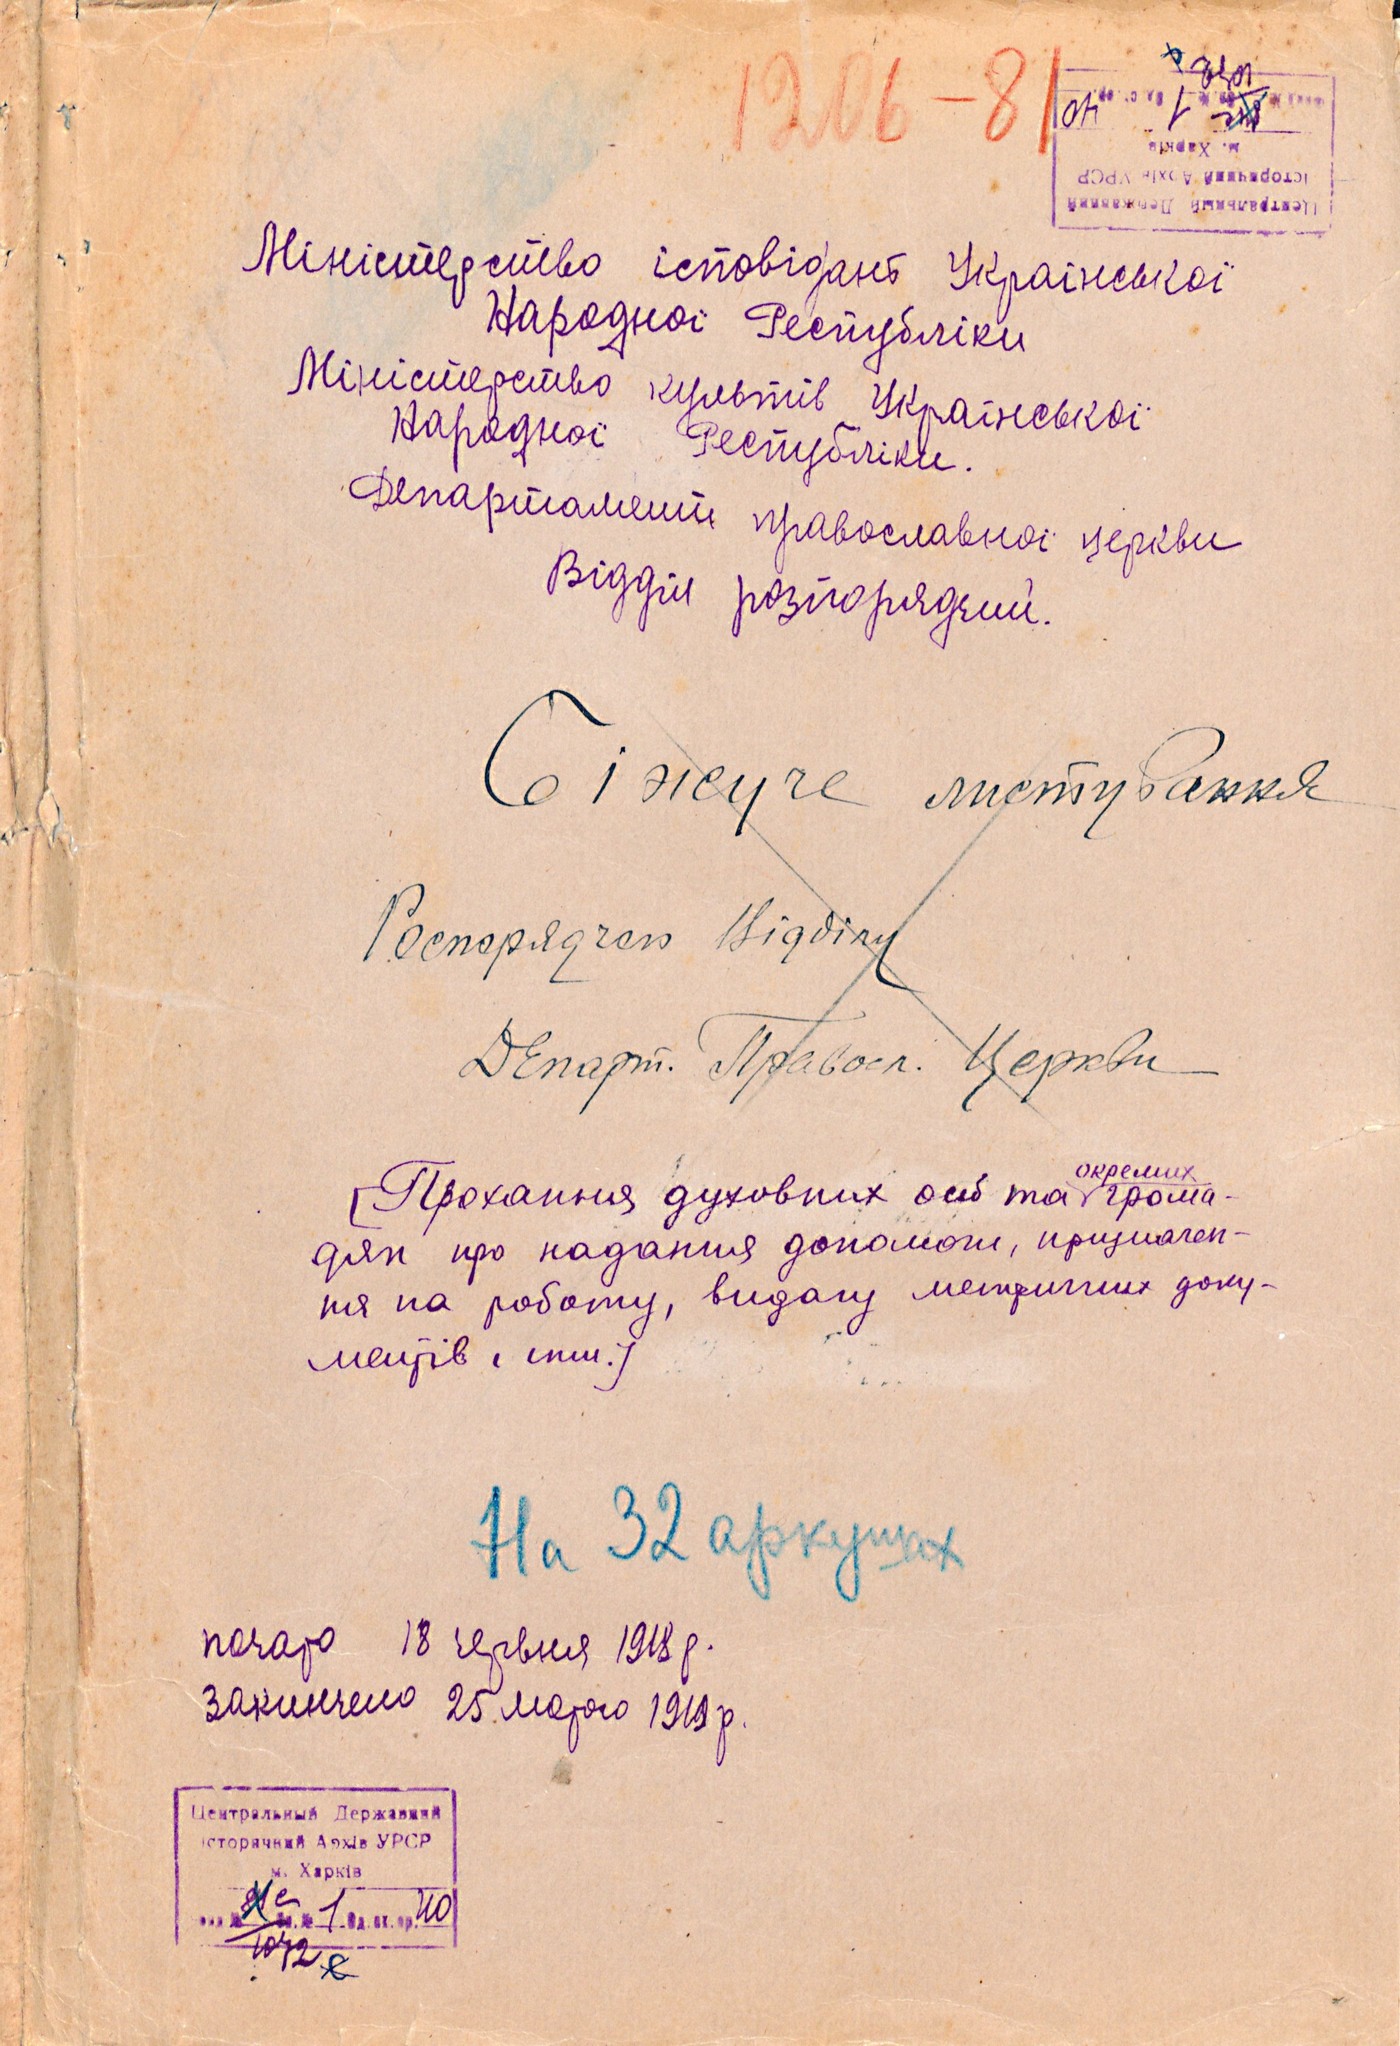 1206-81
Центральный Державний
історичний Архів УРСР
м. Харків
1 40
1072
Міністерство ісповідань Української
Народної Республіки
Міністерство культів Української
Народної Республіки.
Департамент православної церкви
Відділ розпорядчий.
Біжуче листування
Роспорядчого Відділу
Департ. Правосл. Церкви
[Прохання духовних осіб та окремих грома-
дян про надання допомоги, призначен-
ня на роботу, видачу метричних доку-
ментів і інш.]
На 32 аркушах
почато 18 червня 1918 р.
закінчено 25 лютого 1919 р.
Центральный Державний
історичний Архів УРСР
м. Харків
Фонд № оп. № 1 Од. зб. 40
1072